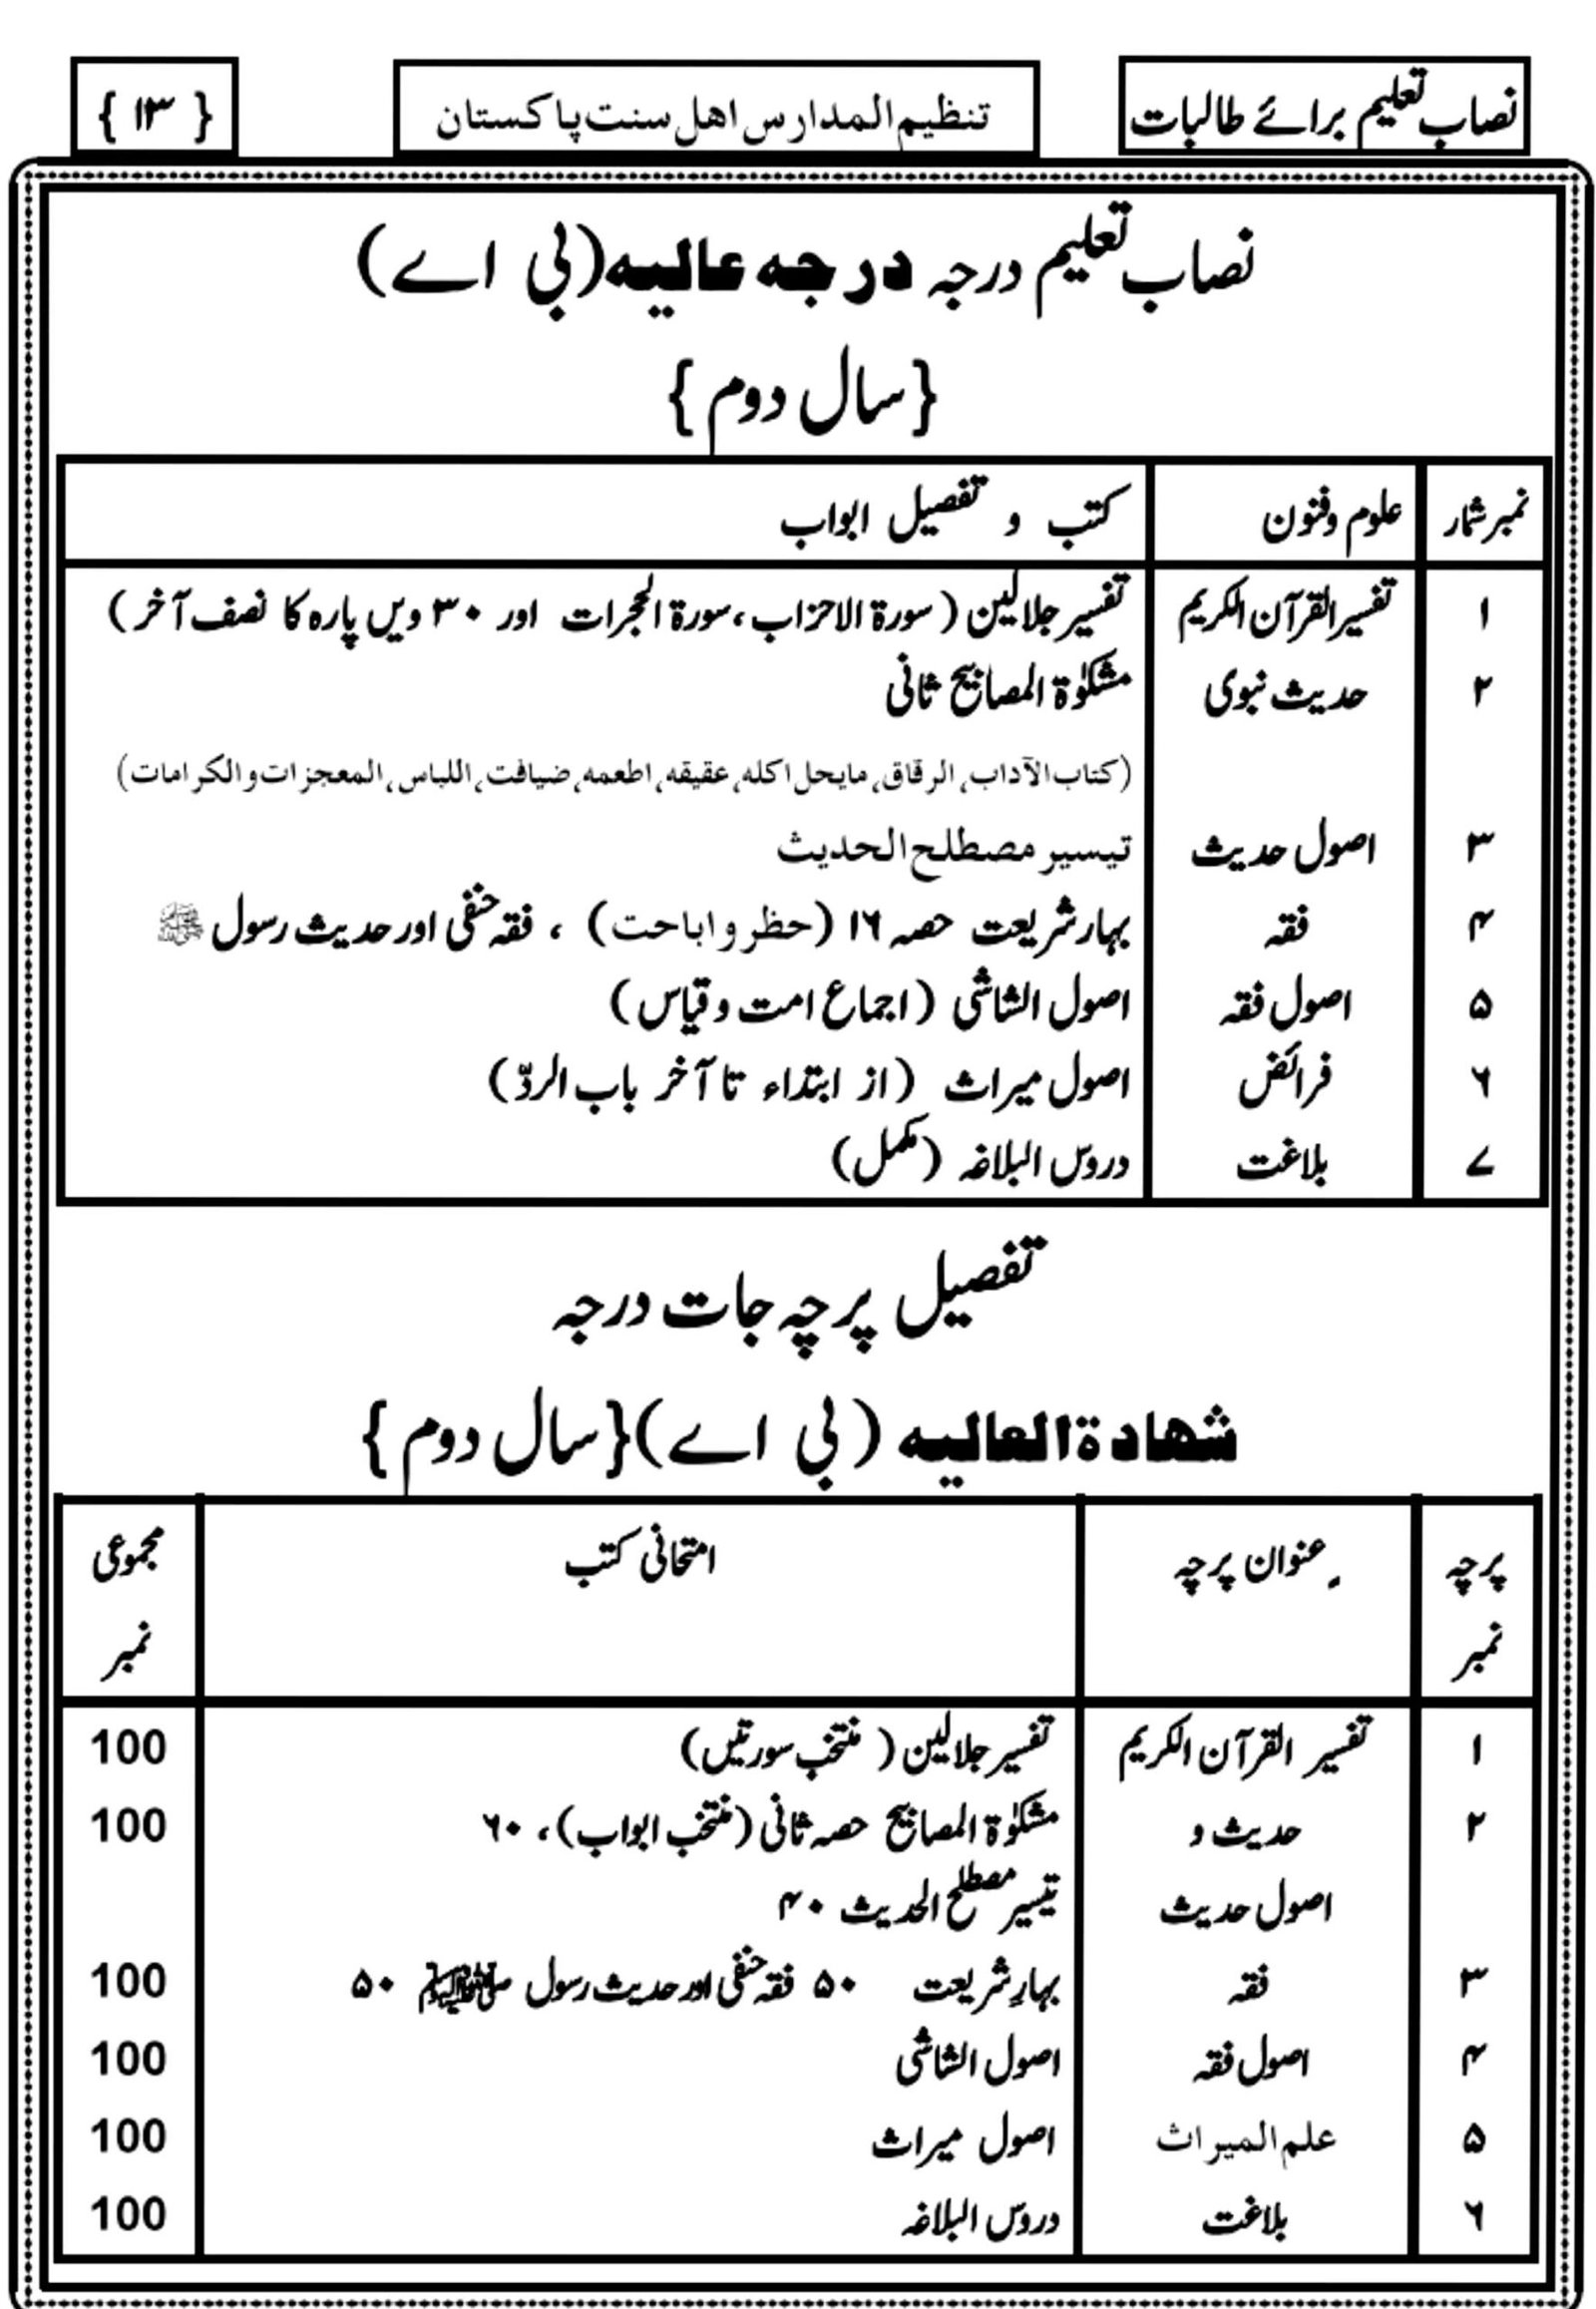 نصاب تعلیم برائے طالبات تنظیم المدارس اھل سنت پاکستان { ۱۳ }
نصاب تعلیم درجہ درجہ عالیہ (بی اے)
{سال دوم}
نمبر شمار علوم وفنون کتب و تفصیل ابواب
۱ تفسیر القرآن الکریم تفسیر جلالین ( سورۃ الاحزاب ، سورۃ الحجرات اور ۳۰ ویں پارہ کا نصف آخر )
۲ حدیث نبوی مشکوٰۃ المصابیح ثانی
(کتاب الآداب، الرقاق، مایحل اکلہ، عقیقہ، اطعمہ، ضیافت، اللباس، المعجزات والکرامات)
۳ اصول حدیث تیسیر مصطلح الحدیث
۴ فقہ بہار شریعت حصہ ۱۶ (حظر و اباحت) ، فقہ حنفی اور حدیث رسول ﷺ
۵ اصول فقہ اصول الشاشی (اجماع امت و قیاس)
۶ فرائض اصول میراث (از ابتداء تا آخر باب الردّ)
۷ بلاغت دروس البلاغہ (مکمل)
تفصیل پرچہ جات درجہ
شھادۃ العالیہ (بی اے) {سال دوم}
پرچہ نمبر عنوان پرچہ امتحانی کتب مجموعی نمبر
۱ تفسیر القرآن الکریم تفسیر جلالین ( منتخب سورتیں) 100
۲ حدیث و مشکوٰۃ المصابیح حصہ ثانی (منتخب ابواب) ، ۶۰ 100
اصول حدیث تیسیر مصطلح الحدیث ۴۰
۳ فقہ بہارِ شریعت ۵۰ فقہ حنفی اور حدیث رسول ﷺ ۵۰ 100
۴ اصول فقہ اصول الشاشی 100
۵ علم المیراث اصول میراث 100
۶ بلاغت دروس البلاغہ 100